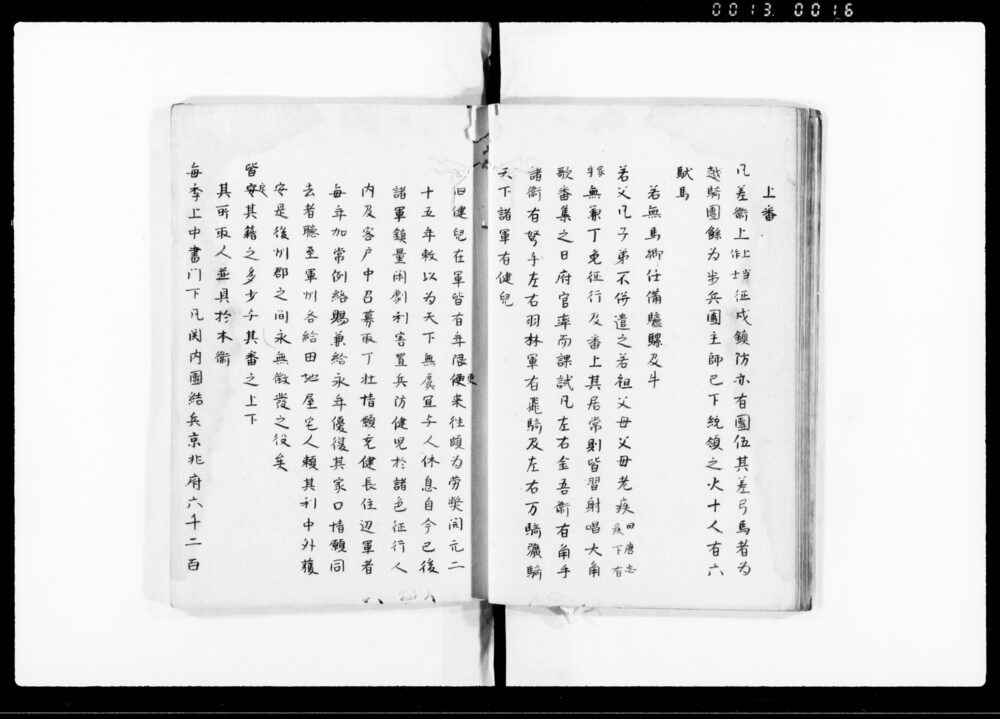 0013 0016
上番
凡差衛上征戍鎮防亦有團伍其差弓馬者为
越騎團餘为步兵團主帥已下統領之火十人有六
馱馬
若無馬郷任備驢騾及牛
若父兄子弟不併遣之若祖父母父母老疾旧唐志疾下有
無兼丁免征行及番上其居常則皆習射唱大角
歌番集之日府官率而課試凡左右金吾衛有角手
諸衛有弩手左右羽林軍有飛騎及左右万騎彍騎
天下諸軍有健兒
旧健兒在軍皆有年限更来往頗为劳獘開元二
十五年敕以为天下無虞宜与人休息自今已後
諸軍鎮量闲劇利害置兵防健児於諸色征行人
内及客户中召募取丁壮情願充健長住辺軍者
每年加常例給賜兼給永年優復其家口情願同
去者聽至軍州各給田地屋宅人賴其利中外獲
安是後州郡之间永無徴發之役矣
皆定其籍之多少与其番之上下
其所取人並具於本衛
每季上中書门下凡関内團結兵京兆府六千二百